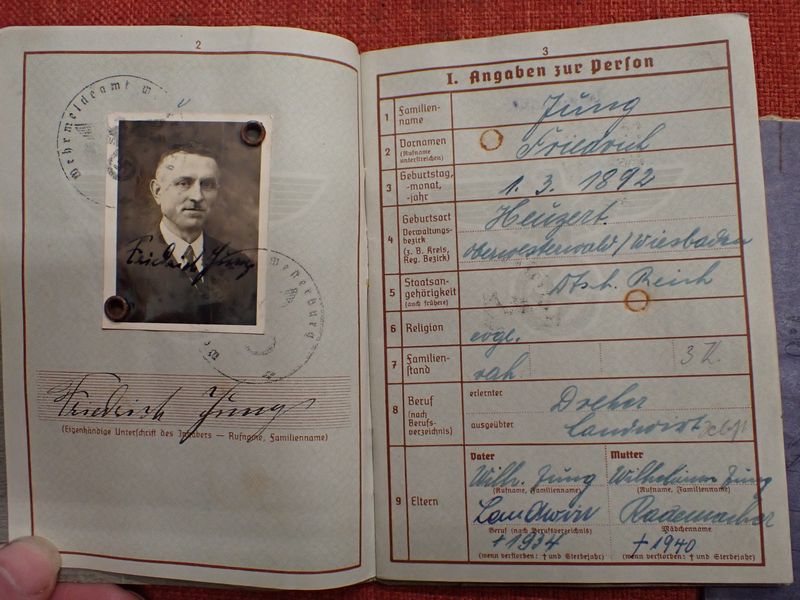 2
Wehrmeldeamt
Friedrich Jung
Friedrich Jung
(Eigenhändige Unterschrift des Inhabers — Rufname, Familienname)
3
I. Angaben zur Person
1 Familien-
name
Jung
2 Vornamen
(Rufname
unterstreichen)
Friedrich
3 Geburtstag,
-monat,
-jahr
1. 3. 1892
4 Geburtsort
Verwaltungs-
bezirk
(z. B. Kreis,
Reg. Bezirk)
Heuzert.
Oberwesterwald/Wiesbaden
5 Staatsan-
gehörigkeit
(auch frühere)
Dtsch. Reich
6 Religion
evgl.
7 Familien-
stand
vrh.
3 K.
8 Beruf
(nach
Berufs-
verzeichnis)
erlernter
Dreher
ausgeübter
Landwirt
9 Eltern
Vater
Wilh. Jung
(Rufname, Familienname)
Landwirt
Beruf (nach Berufsverzeichnis)
+ 1934
(wenn verstorben: † und Sterbejahr)
Mutter
Jung
(Rufname, Familienname)
Rademacher
Mädchenname
+ 1940
(wenn verstorben: † und Sterbejahr)